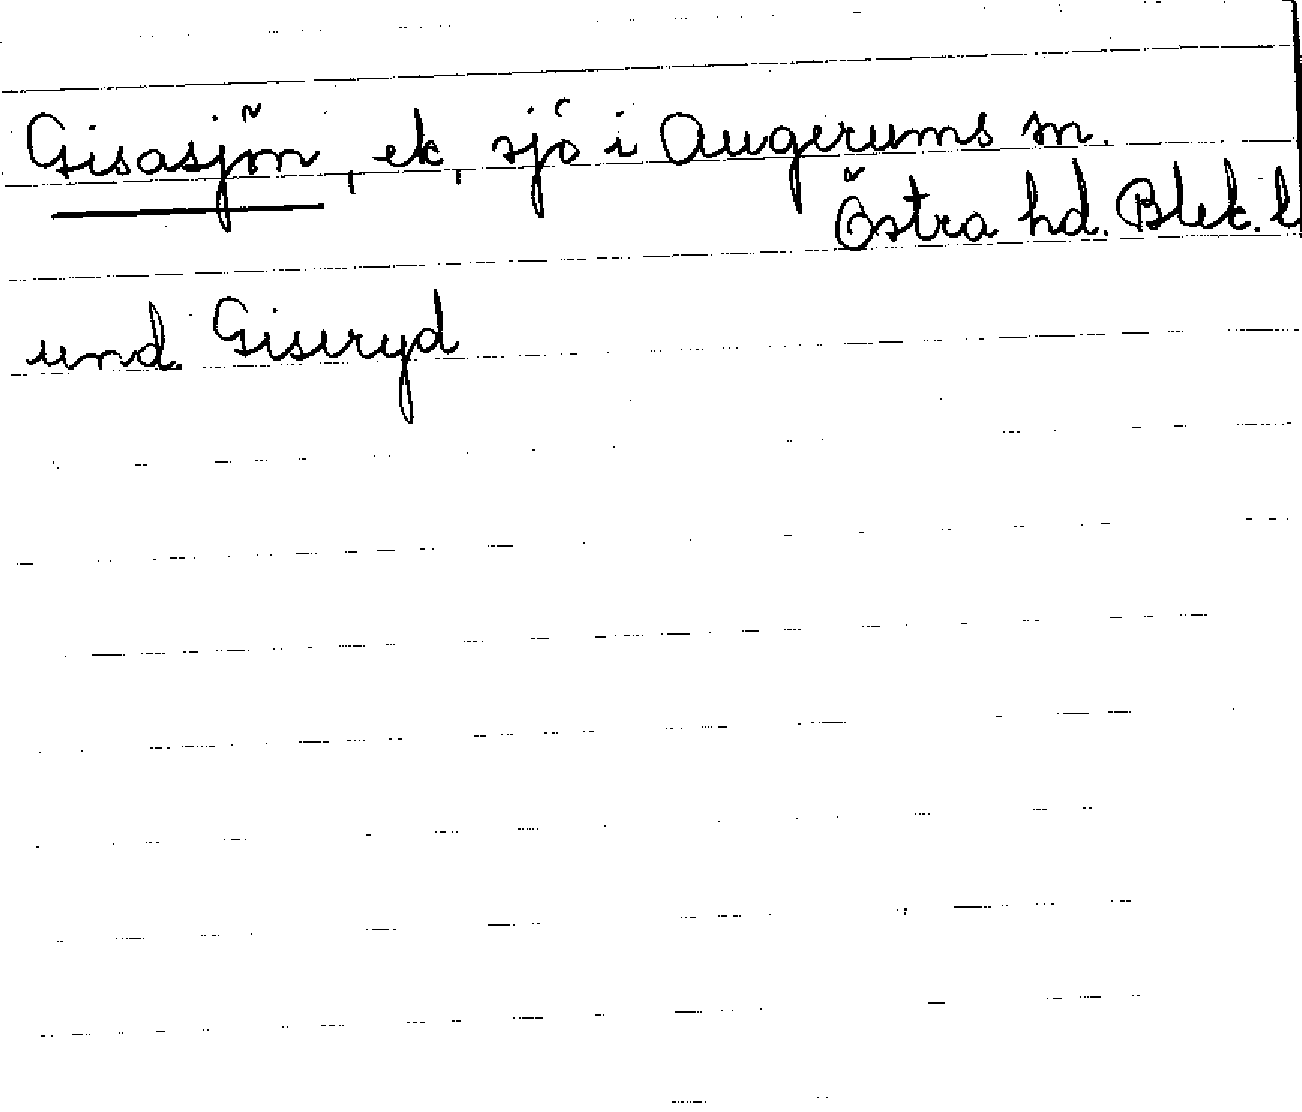 Gisasjön, ek, sjö i Augerums sn.
Östra hd. Blek. l
und. Giseryd